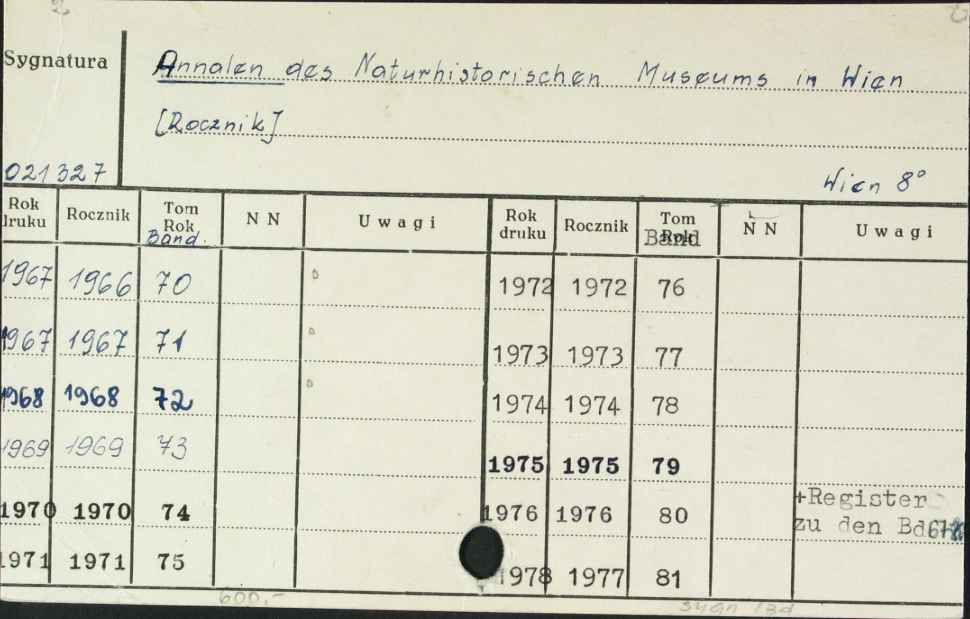 Sygnatura
Annalen des Naturhistorischen Museums in Wien
[Rocznik]
021327
Wien 8°
Rok druku Rocznik Tom Rok Band. N N Uwagi Rok druku Rocznik Tom Rok Band N N Uwagi
1967 1966 70 1972 1972 76
1967 1967 71 1973 1973 77
1968 1968 72 1974 1974 78
1969 1969 73 1975 1975 79
1970 1970 74 1976 1976 80 +Register
zu den Bd
1971 1971 75 1978 1977 81
600,-